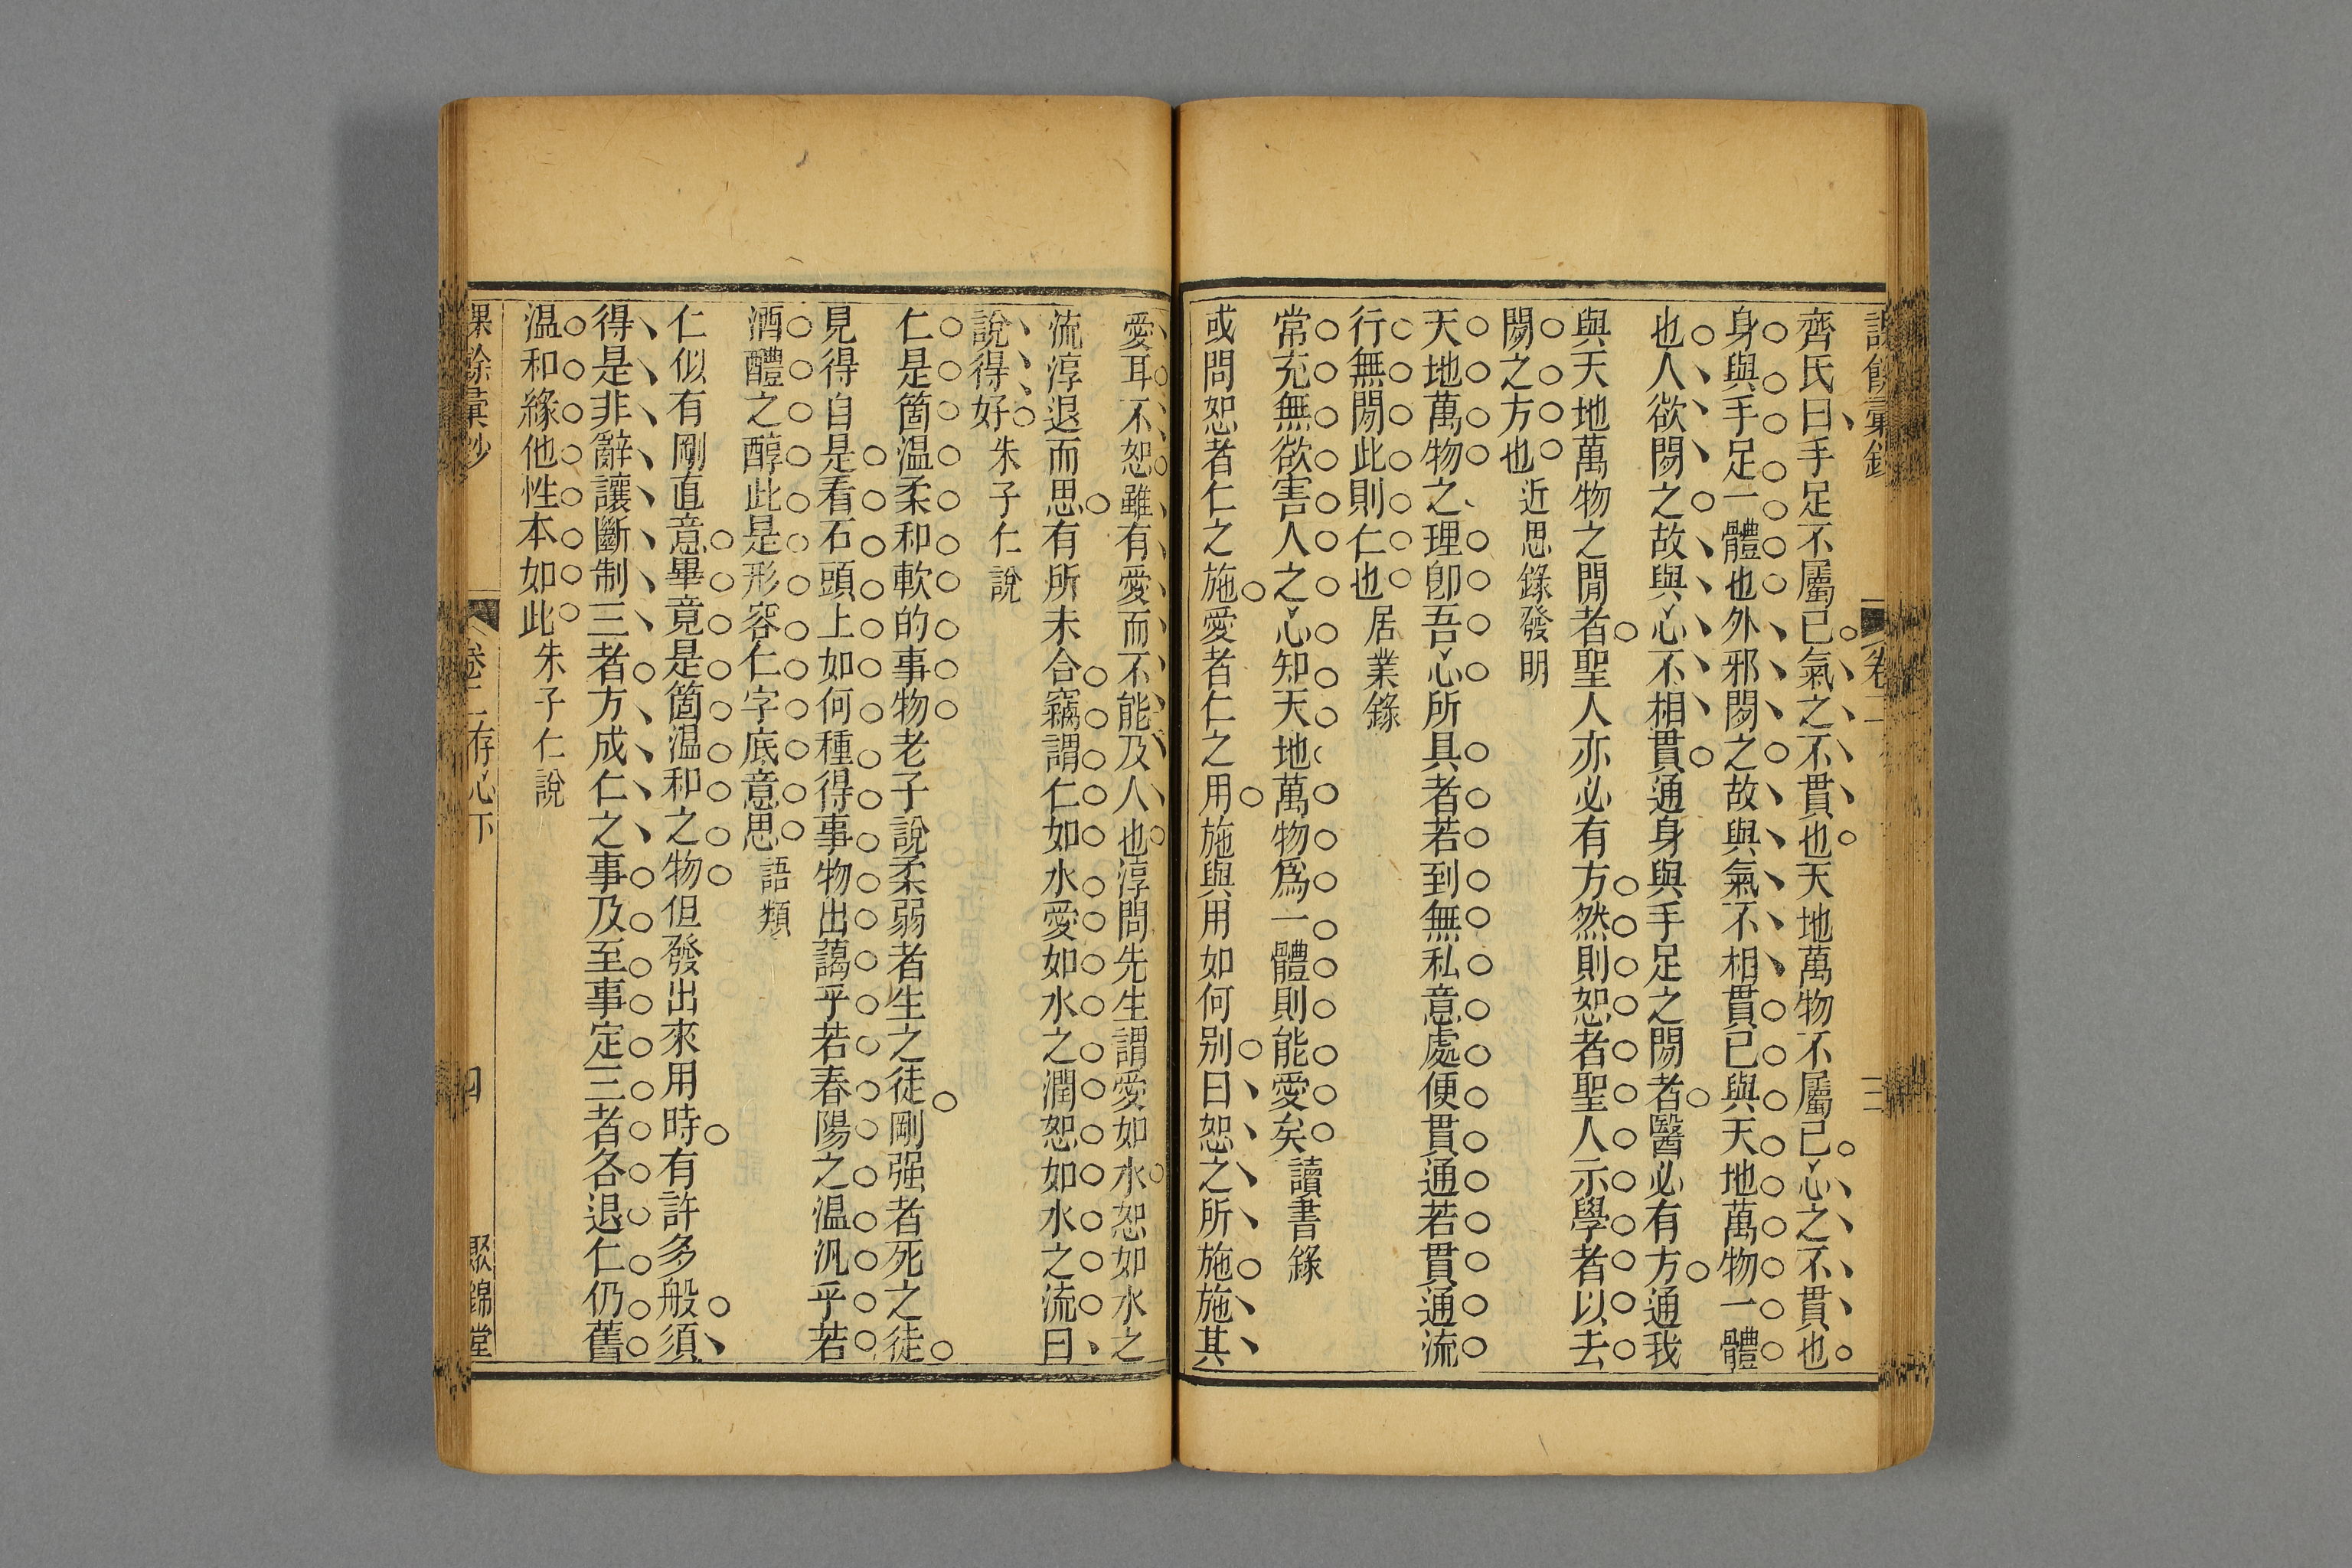 齊氏曰手足不屬已氣之不貫也天地萬物不屬己心之不貫也
身與手足一體也外邪閡之故與氣不相貫已與天地萬物一體
也人欲閡之故與心不相貫通身與手足之閡者醫必有方通我
與天地萬物之閒者聖人亦必有方然則恕者聖人示學者以去
閡之方也近思錄發明
天地萬物之理卽吾心所具者若到無私意處便貫通若貫通流
行無閡此則仁也居業錄
常充無欲害人之心知天地萬物爲一體則能愛矣讀書錄
或問恕者仁之施愛者仁之用施與用如何别曰恕之所施施其
愛耳不恕雖有愛而不能及人也淳問先生謂愛如水恕如水之
流淳退而思有所未合竊謂仁如水愛如水之潤恕如水之流曰
說得好朱子仁說
仁是箇温柔和軟的事物老子說柔弱者生之徒剛强者死之徒
見得自是看石頭上如何種得事物出藹乎若春陽之温汎乎若
酒醴之醇此是形容仁字底意思語類
仁似有剛直意畢竟是箇温和之物但發出來用時有許多般須
得是非辭讓斷制三者方成仁之事及至事定三者各退仁仍舊
温和緣他性本如此朱子仁說
卷二存心下
聚錦堂